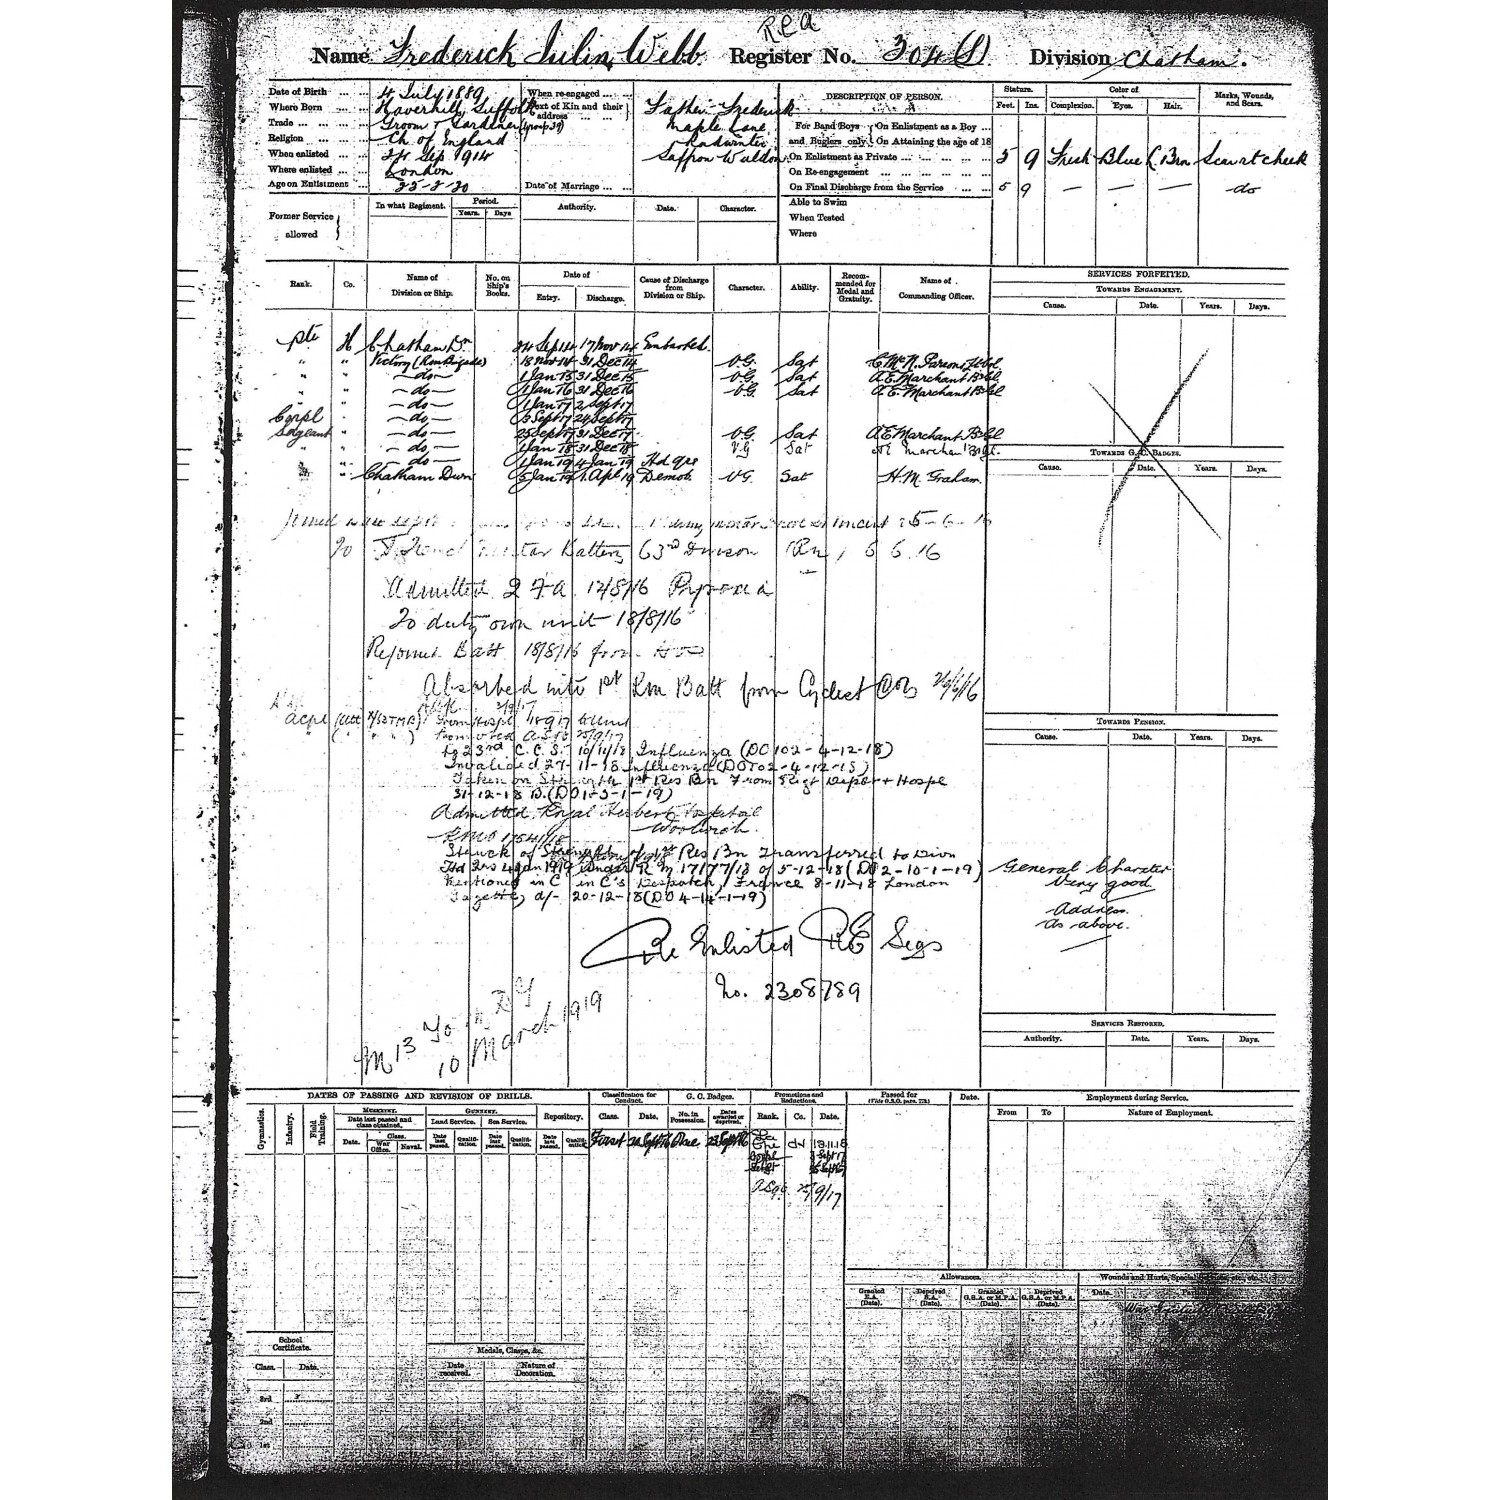 R.M.A
Name Frederick Julin Webb Register No. 304(S) Division Chatham.
Date of Birth 4 July 1889
Where Born Haverhill, Suffolk
Trade Groom & Gardiner (Group 39)
Religion Ch of England
When enlisted 24 Sep 1914
Where enlisted London
Age on Enlistment 25-2-20
When re-engaged
Next of Kin and their address
Father Frederick
Maple Lane
Radwinter
Saffron Waldon
Date of Marriage
DESCRIPTION OF PERSON.
Stature. Color of Marks, Wounds, and Scars.
Feet. Ins. Complexion. Eyes. Hair.
For Band Boys and Buglers only On Enlistment as a Boy
On Attaining the age of 18
On Enlistment as Private 5 9 Fresh Blue L. Brn Scar at cheek
On Re-engagement
On Final Discharge from the Service 5 9 — — — do
Able to Swim
When Tested
Where
Former Service allowed
In what Regiment. Period. Years. Days Authority. Date. Character.
Rank. Co. Name of Division or Ship. No. on Ship's Books. Date of Entry. Discharge. Cause of Discharge from Division or Ship. Character. Ability. Recommended for Medal and Gratuity. Name of Commanding Officer.
Pte H Chatham Dn 24 Sep 14 17 Nov 14 Embarked.
" " Victory (Rm Brigade) 18 Nov 14 31 Dec 14 V.G. Sat C McN. Parsons Lt Col
" " —do— 1 Jan 15 31 Dec 15 V.G. Sat A E Marchant B Col
" " —do— 1 Jan 16 31 Dec 16 V.G. Sat A. E. Marchant B Col
" —do— 1 Jan 17 2 Sept 17
Corpl —do— 3 Sept 17 24 Sept 17
Sergeant " —do— 25 Sept 17 31 Dec 17 V.G. Sat A E Marchant B Col
" —do— 1 Jan 18 31 Dec 18 V.G Sat A E Marchant
—do— 1 Jan 19 4 Jan 19 Hd qrs
" Chatham Divn 5 Jan 19 1. Apl 19 Demob. VG Sat H. M. Graham.
SERVICES FORFEITED.
TOWARDS ENGAGEMENT.
Cause. Date. Years. Days.
TOWARDS G. C. BADGES.
Cause. Date. Years. Days.
5-6-16
To Trench Mortar Battery 63rd Division (Rn) 6 6.16
Admitted 2 FA 12/8/16 Pyrexia
To duty own unit 18/8/16
Rejoined Batt 18/8/16 from
Absorbed into 1st Rm Batt from Cyclist Coy
TOWARDS PENSION.
Cause. Date. Years. Days.
From Hospl 18 9 17 to Unit
Promoted A Sgt 25/9/17
to 23rd C.C.S. 10/11/18 Influenza (DO 102-4-12-18)
Invalided 27-11-18 Influenza (DO 102-4-12-18)
Taken on Strength 1st Res Bn From Regt Depot & Hospl
31-12-18 (DO 1-3-1-19)
Admitted Royal Herbert Hospital
Woolwich.
Struck of Strength of 1st Res Bn Transferred to Divn
Hd Qrs 4 Jan 1919 under R M 17177/18 of 5-12-18 (DO 2-10-1-19)
Mentioned in C in C's Despatch, France 8-11-18 London
Gazette, d/- 20-12-18 (DO 4-14-1-19)
General Charater
Very good
Address.
As above.
Re Enlisted RE Sigs
No. 2308789
M 13 To
10 March 1919
SERVICES RESTORED.
Authority. Date. Years. Days.
DATES OF PASSING AND REVISION OF DRILLS.
Gymnastics. Infantry. Field Training.
MUSKETRY. Date last passed and class obtained. Date. Class. War Office. Naval.
GUNNERY. Land Service. Sea Service. Date last passed. Qualification. Date last passed. Qualification.
Repository. Date last passed. Qualification.
Classification for Conduct. Class. Date.
G. C. Badges. No. in Possession. Dates awarded or deprived.
Promotions and Reductions. Rank. Co. Date.
Passed for (Vide G.S.O. para. 773.) Date.
Employment during Service.
From To Nature of Employment.
First 24 Sept 16 One 23 Sept 16
18.11.18
Corpl 3 Sept 17
Sergt 25 Sept 17
A Sgt 25/9/17
Allowances.
Granted E.A. (Date). Deprived E.A. (Date). Granted G.S.A. or M.P.A. (Date). Deprived G.S.A. or M.P.A. (Date).
Wounds and Hurts,
Date.
School Certificate.
Class. Date.
3rd
2nd
1st
Medals, Clasps, &c.
Date received. Nature of Decoration.